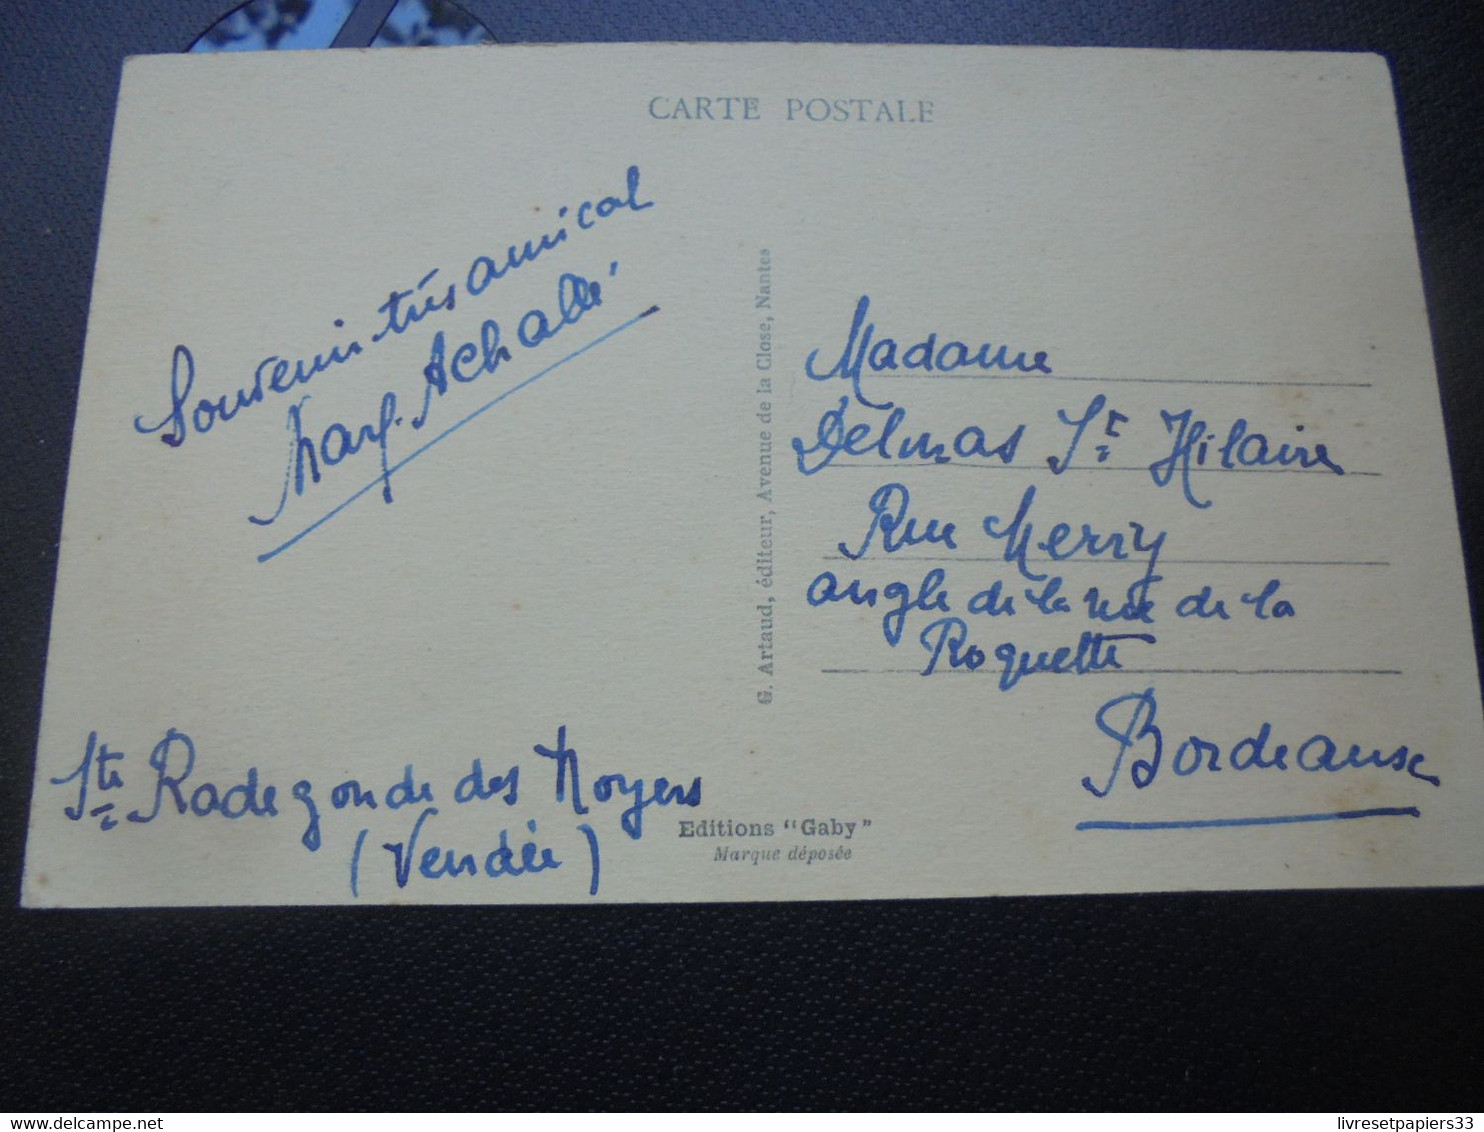 CARTE POSTALE
Souvenir très amical
Marg. Achallé
Ste Radegonde des Noyers
(Vendée)
G. Artaud, éditeur, Avenue de la Close, Nantes
Editions "Gaby"
Marque déposée
Madame
Delmas St Hilaire
Rue Merry
angle de la rue de la
Roquette
Bordeaux
livresetpapiers33